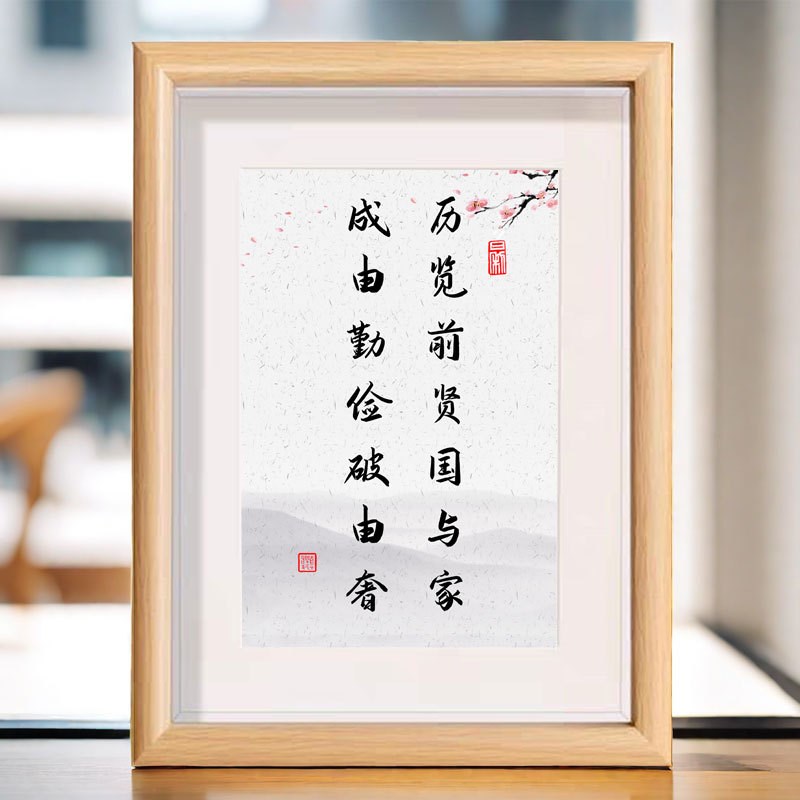 历览前贤国与家
成由勤俭破由奢